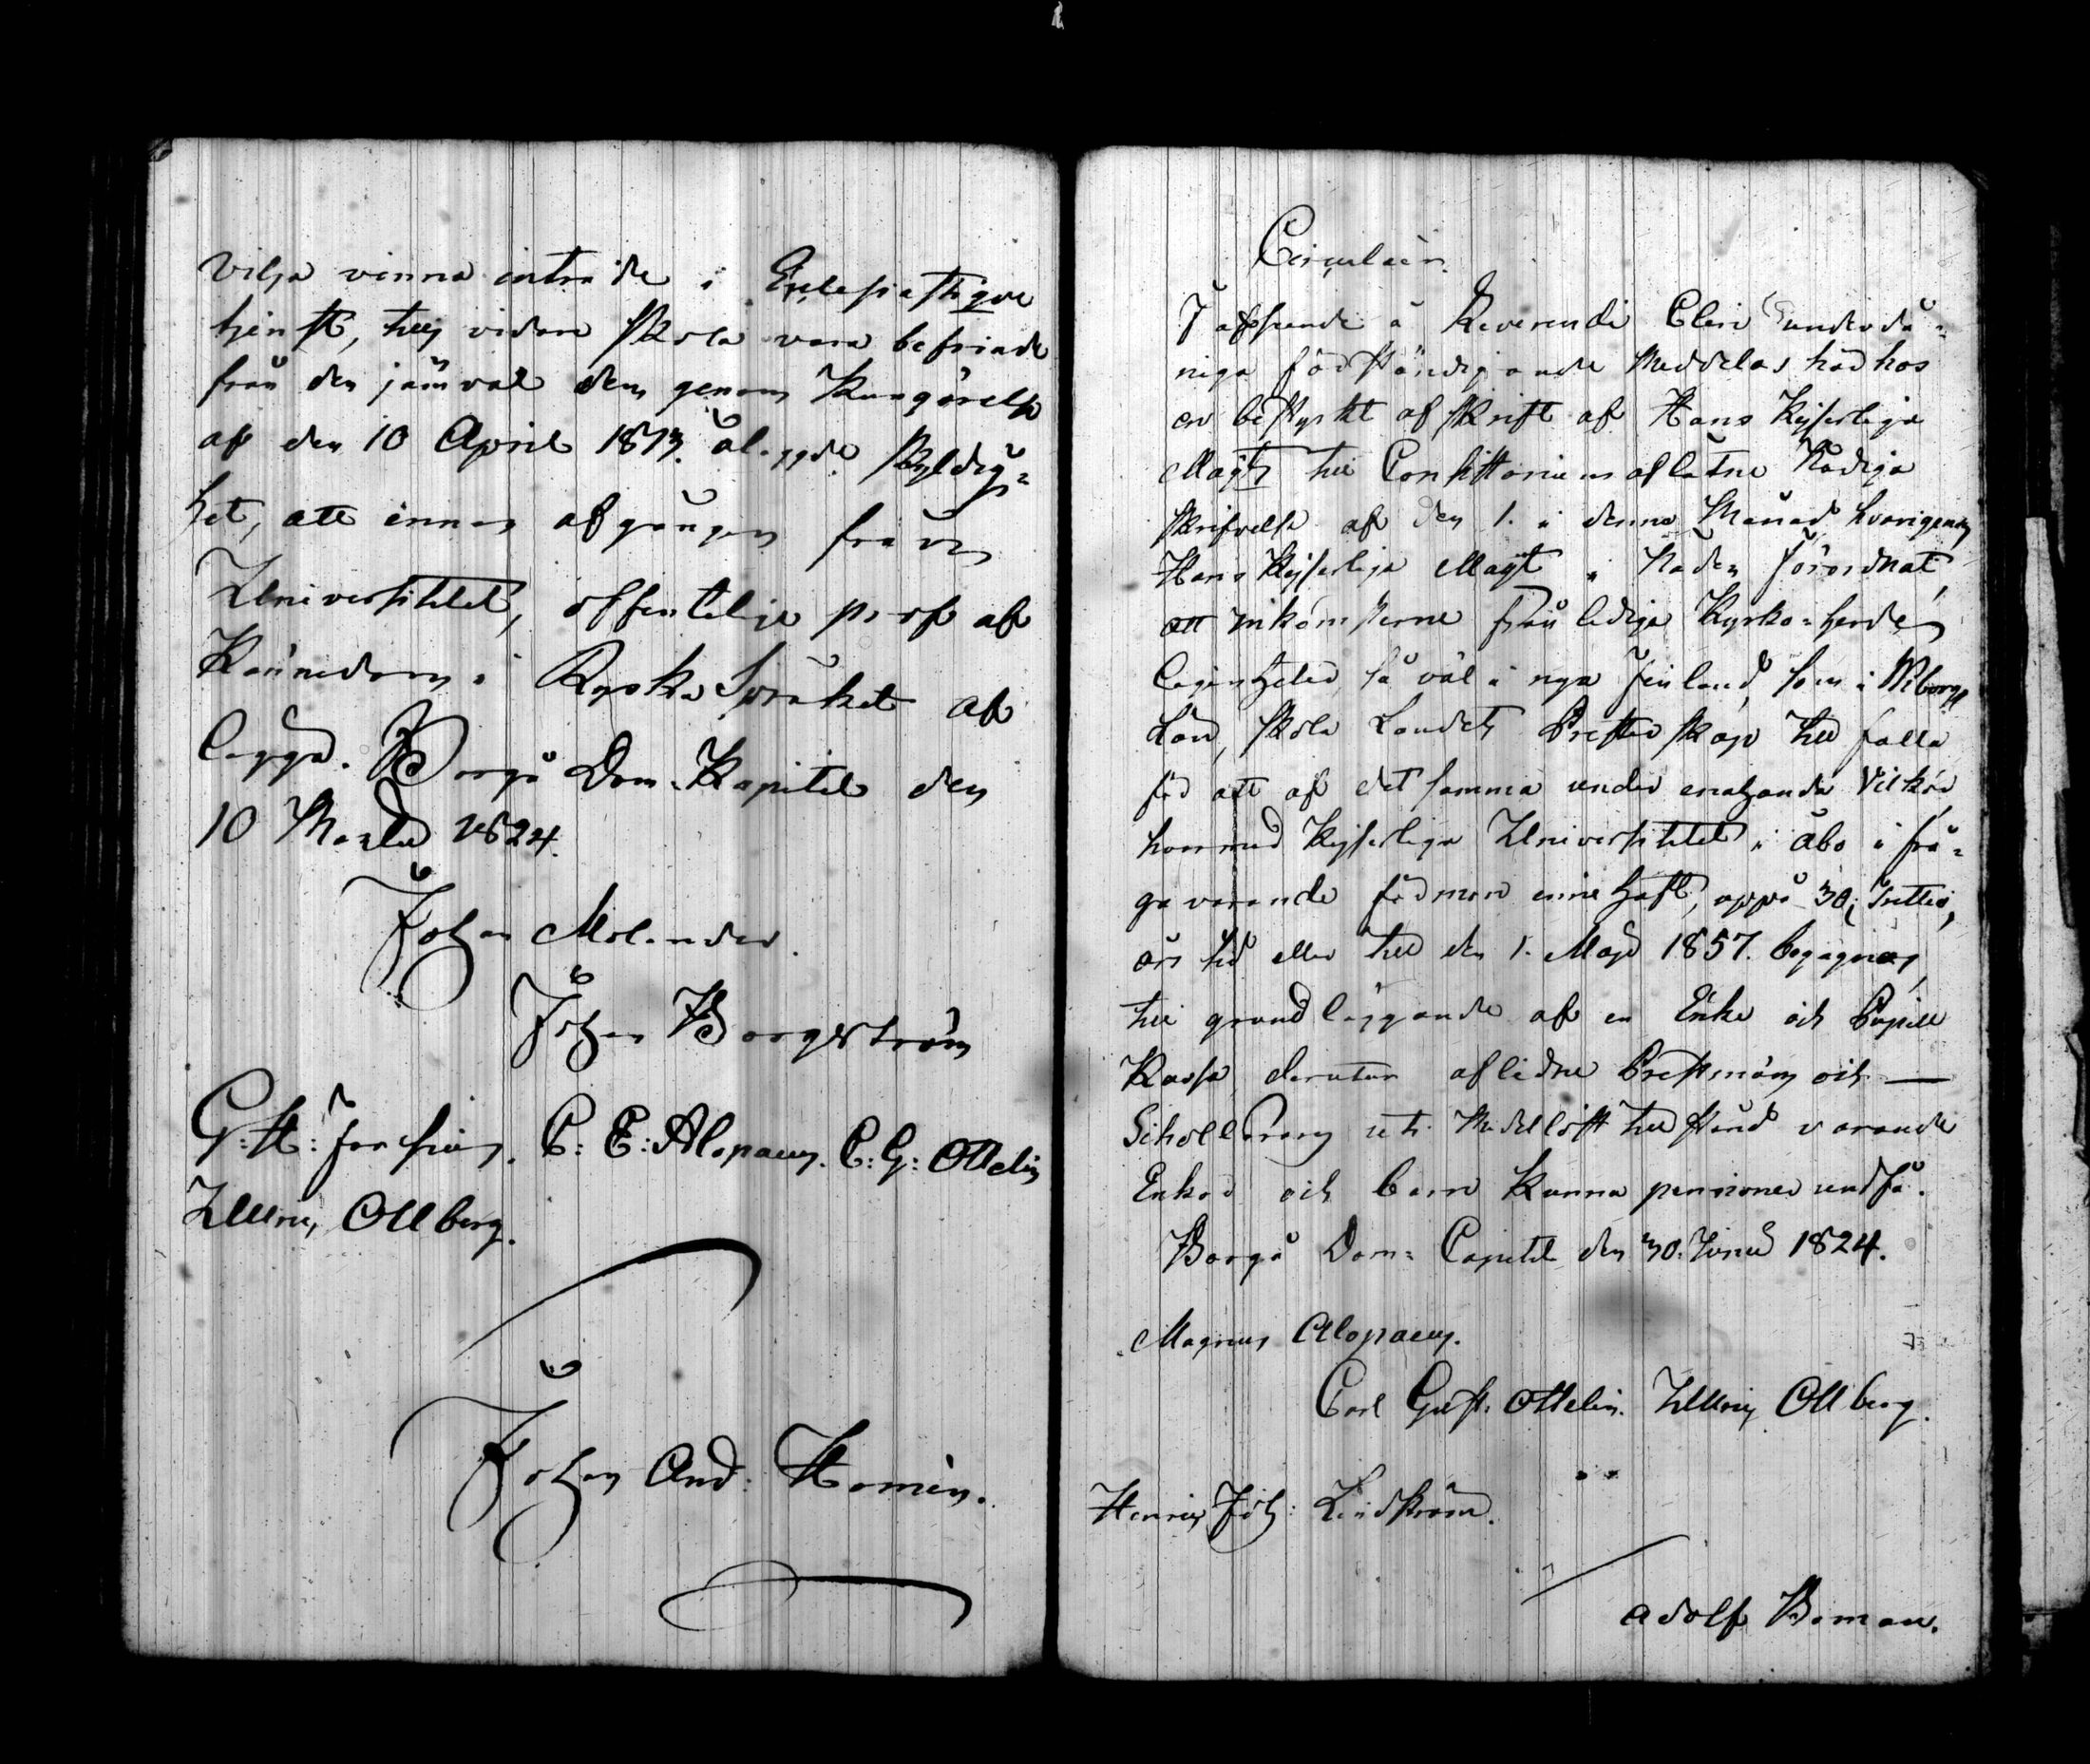 vilja vinna inträde i Ecclesiastique
tjenst, tills vidare skola vara befriade
från den jämväl dem genom Kungörelse
af den 10 April 1813. ålagde skyldig=
het, att innan afgången från
Universitetet, offentelige prof af
Kännedom i Ryska Språket af
lägga. Borgå Dom-Kapitel den
10 Martii 1824.
Johan Molander.
Johan Borgström
G: H: Forsius. C: E: Alopaeus. C: G: Ottelin
Ulric Ollberg.
Johan And: Homén.
Circulair.
I afseende å Reverendi Cleri underdå=
niga fodständigande Meddelas härhos
en bestyrkt afskrift af Hans Kejserliga
Majts till Consistorium aflåtne Nådiga
skrifvelse af den 1. i denna Månad hvarigenom
Hans Kejserliga Majt i Nåder förordnat,
att inkomsterne från lediga Kyrko=herde
lägenheter så väl i nya Finland som i Wiborgs
Län, skola Landets Presterskap till falla
för att af det samma under enahanda Vilkor
hvarmed Kejserliga Universitetet i Åbo i frå=
ga varande förmon innehaft, uppå 30 Trettio
års tid eller till den 1. Maji 1857. begagnas,
till grundläggande af en Enke och Pupill
Kassa, derutur aflidne Prestmäns och —
Scholl Prens uti Medellöst tillstånd varande
Enkor och barn kunna pensioner undfå.
Borgå Dom= Capitel den 30. Junii 1824.
Magnus Alopaeus.
Carl Gust. Ottelin. Ulric Ollberg.
Henric Joh: Lindström.
Adolf Boman.